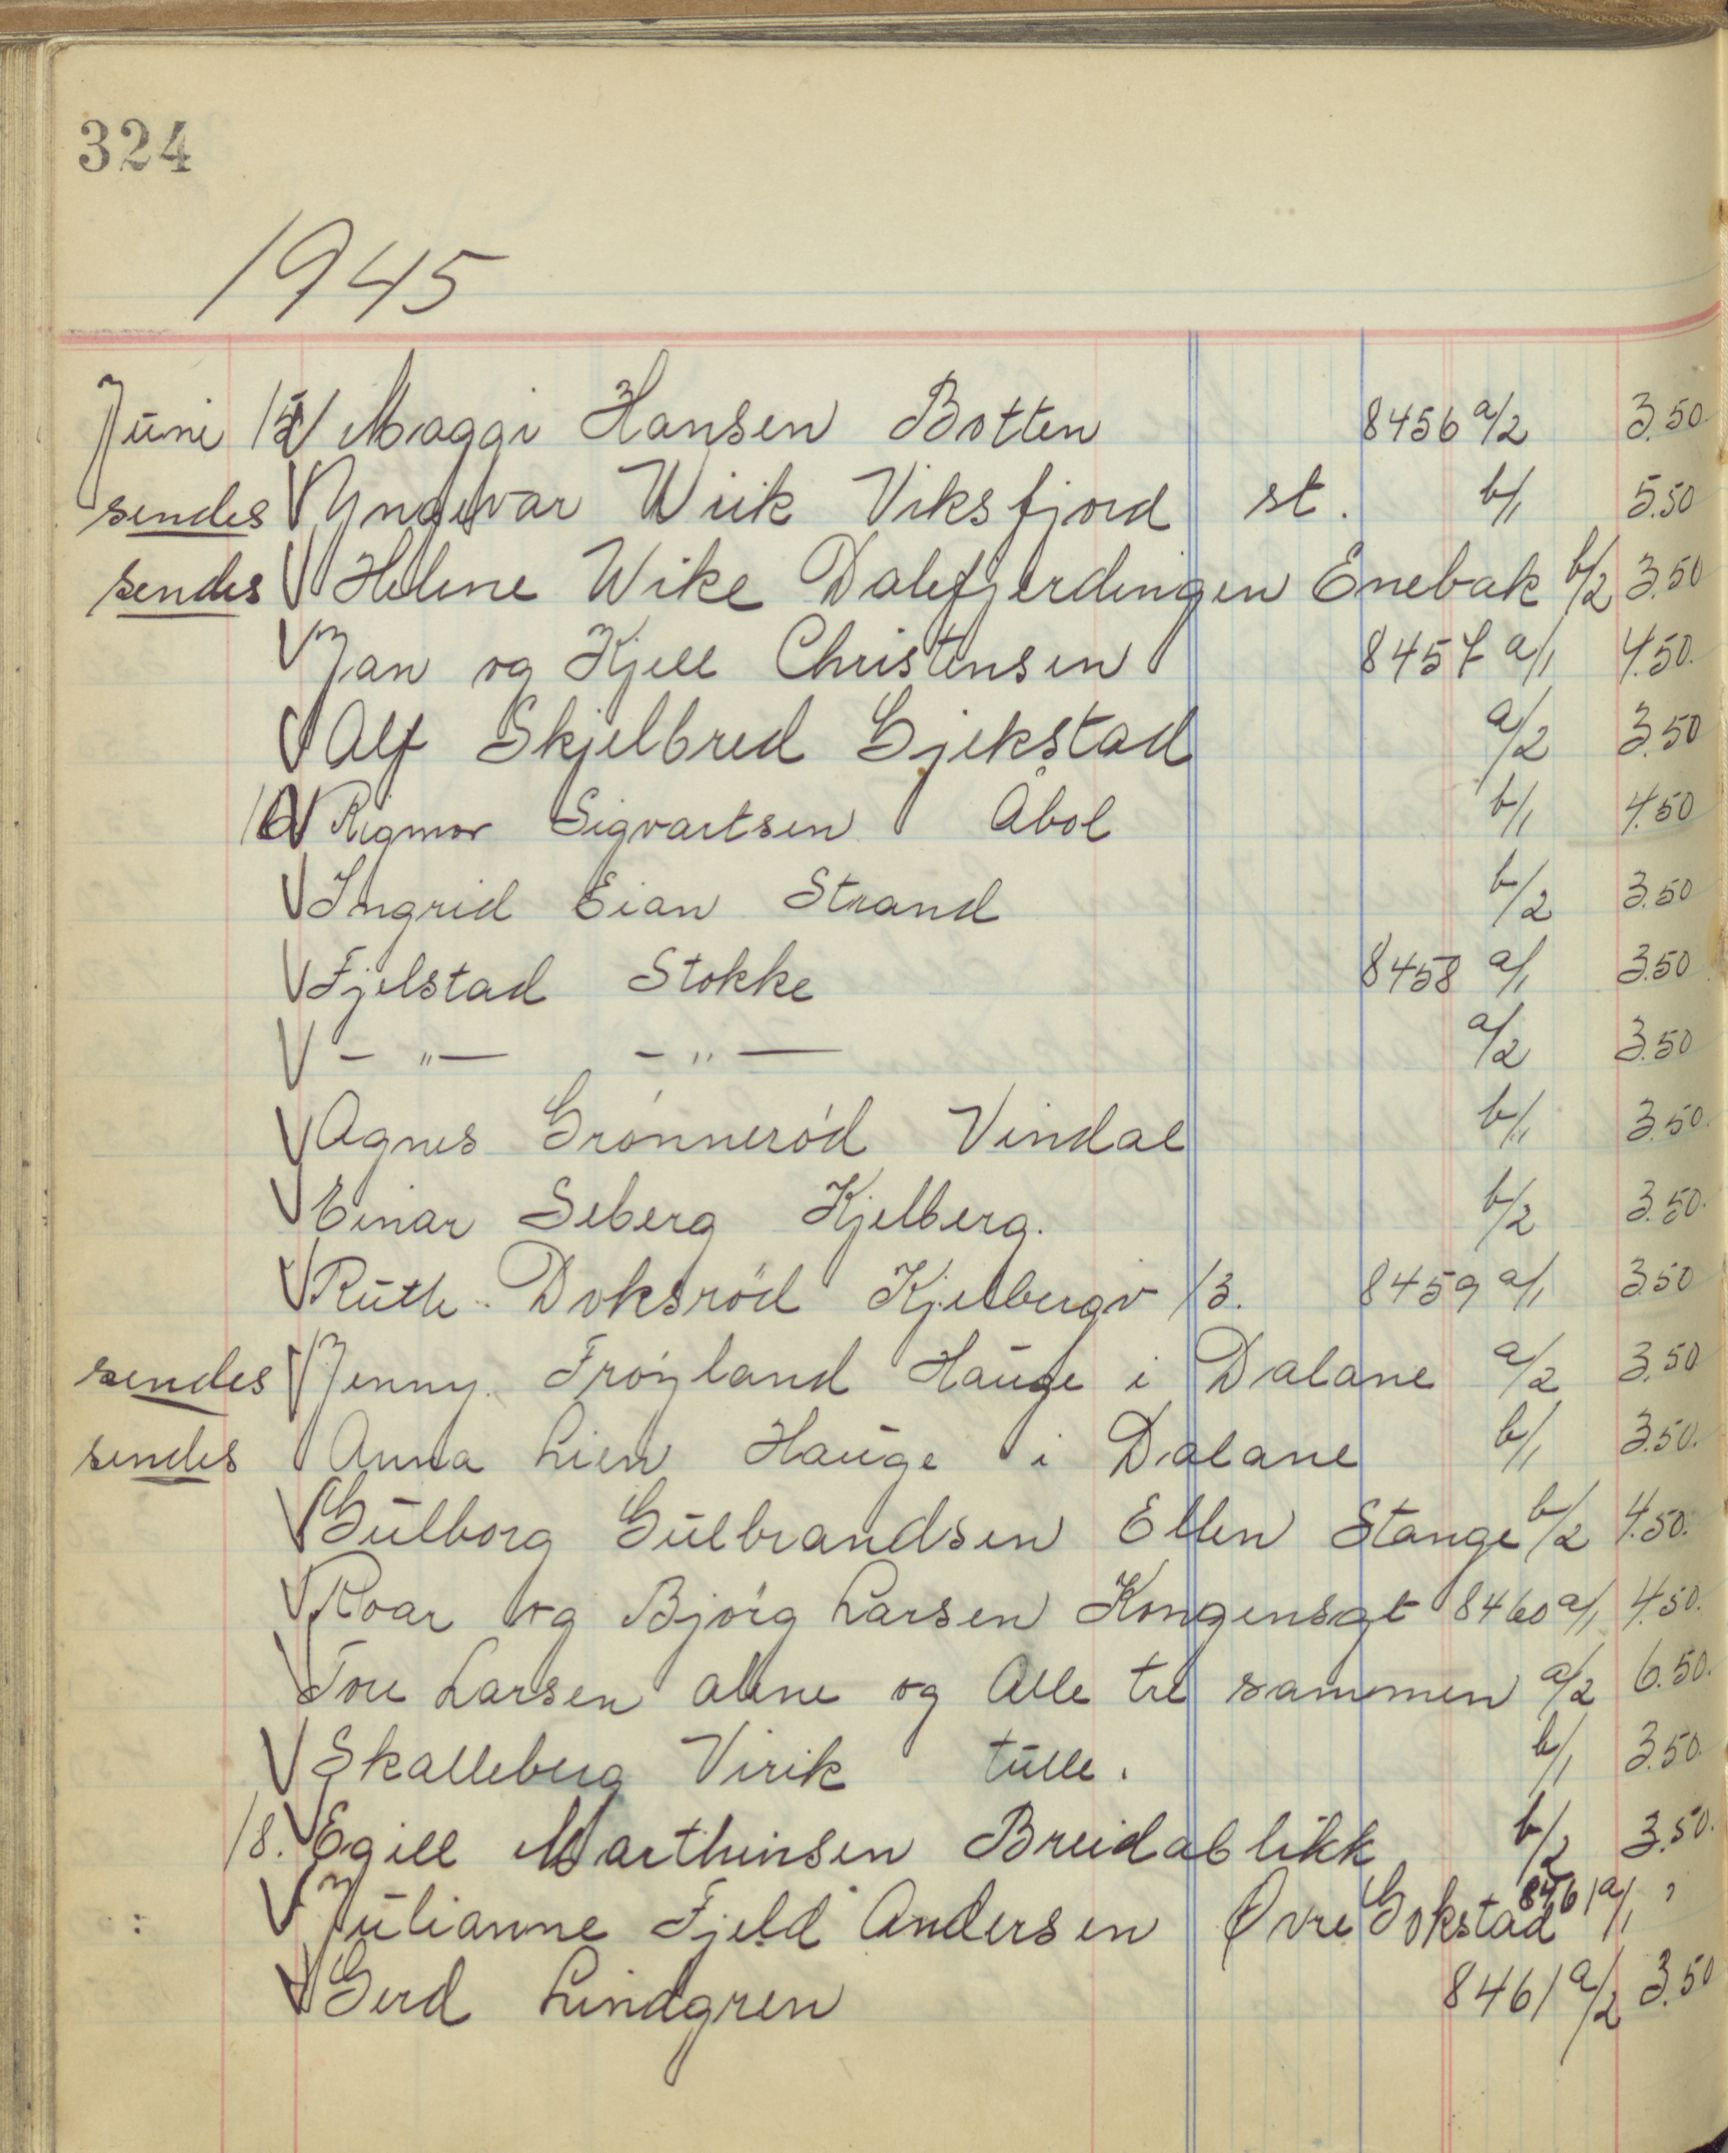 324
1945
Juni 15 V Maggi Hansen Botten 8456 a/2 3.50.
sendes V Yngvar Wiik Viksfjord st. b/1 5.50
sendes V Helene Wike Dalefjerdingen Enebak b/2 3.50
V Jan og Kjell Christensen 8457 a/1 4.50.
V Alf Skjelbred Gjekstad a/2 3.50
16 V Rigmor Sigvartsen Åbol b/1 4.50
V Ingrid Eian Strand b/2 3.50
V Fjelstad Stokke 8458 a/1 3.50
V - " - - " - a/2 3.50
V Agnes Grónneród Vindal b/1 3.50.
V Einar Seberg Kjelberg. b/2 3.50.
V Ruth Doksröd Kjelbergv 13. 8459 a/1 3.50
sendes V Jenny Fröyland Hauge i Dalane a/2 3.50
sendes Anna Lien Hauge i Dalane b/1 3.50.
V Gulborg Gulbrandsen Ellen Stange b/2 4.50.
V Roar og Björg Larsen Kongensgt 8460 a/1 4.50.
V Tore Larsen alene og Alle tre sammen a/2 6.50.
V Skalleberg Virik tulle. b/1 3.50.
18. V Egill Marthinsen Breidablikk b/2 3.50.
V Julianne Fjeld Andersen Øvre Gokstad 8461 a/1 "
V Gerd Lindgren 8461 a/2 3.50